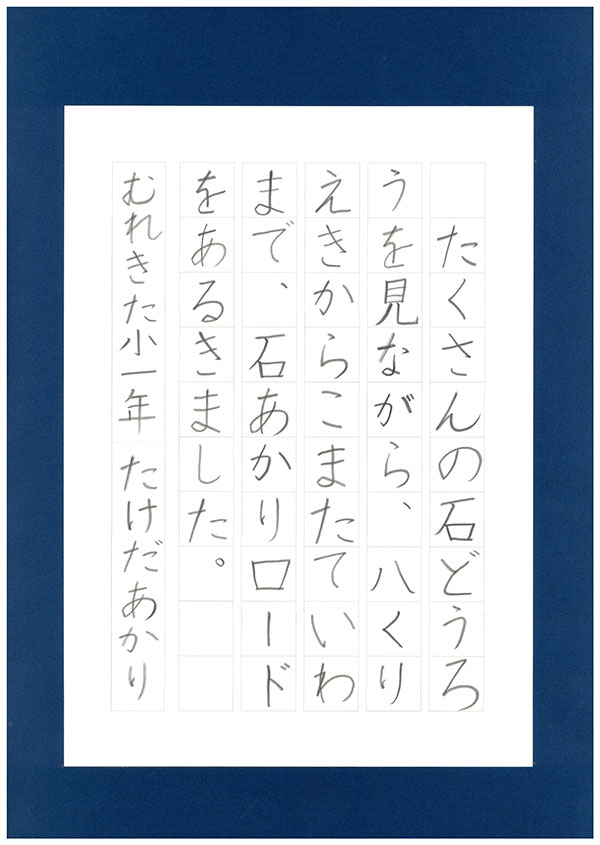 たくさんの石どうろ
うを見ながら、八くり
えきからこまたていわ
まで、石あかりロード
をあるきました。
むれきた小一年 たけだあかり